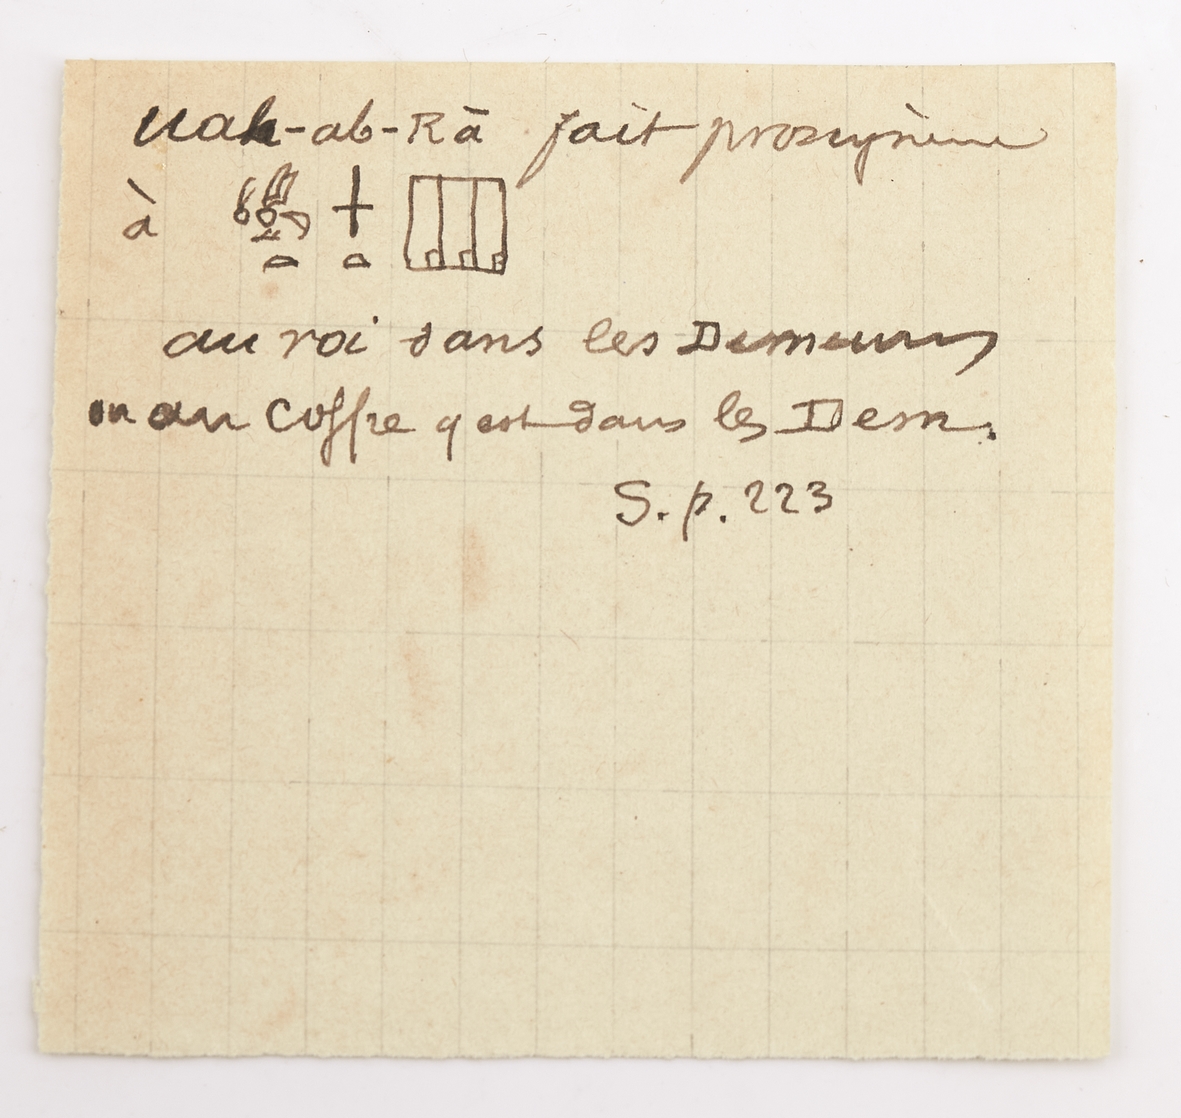 Uah-ab-Rā fait proscynème
à
au roi dans les Demeures
ou au Coffre q est dans les Dem.
S. p. 223